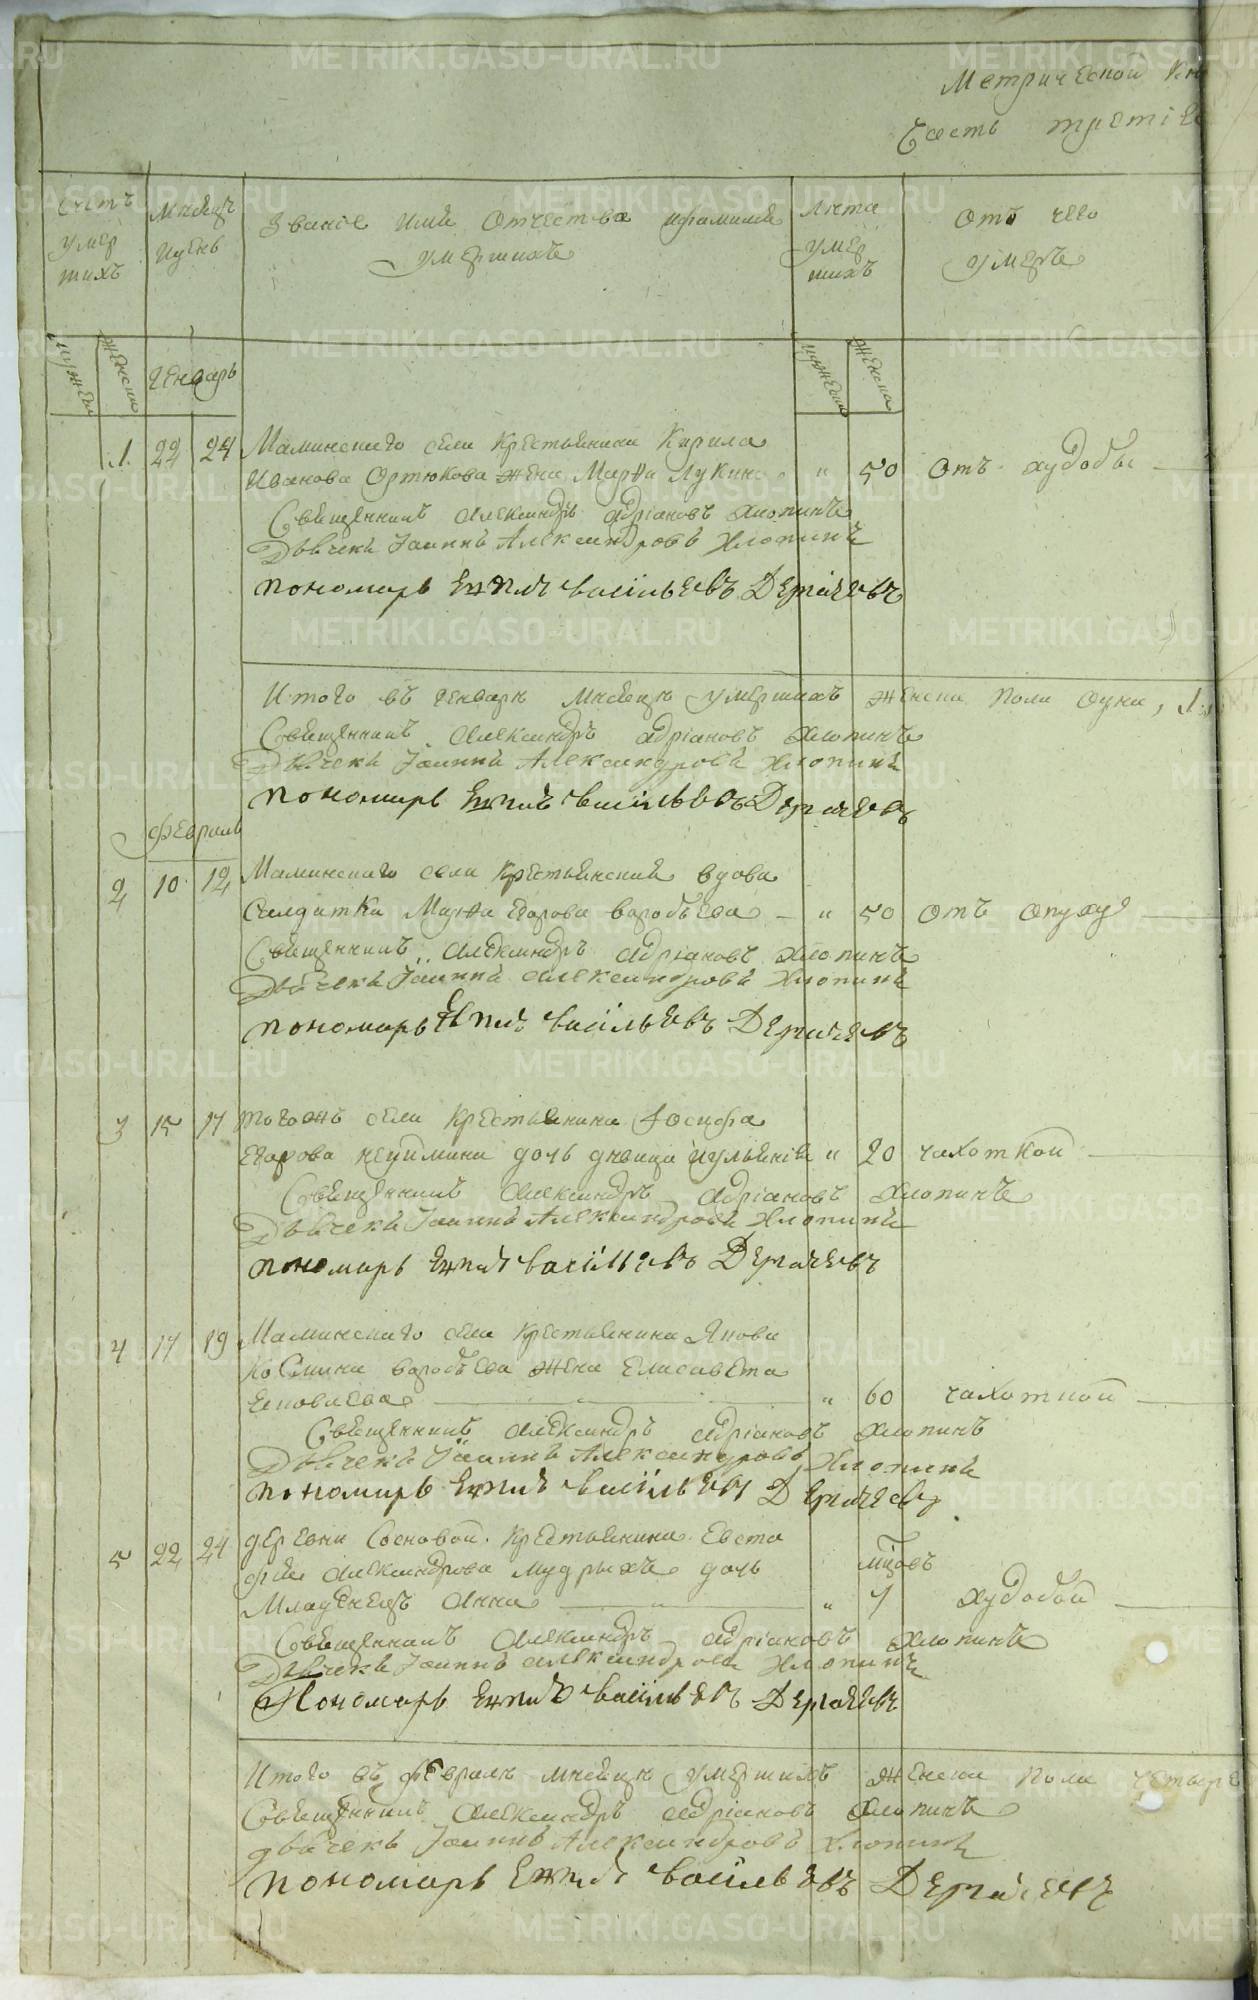 Метрической Кни
Часть третiя
Счетъ умершихъ
Мѣсяцъ и день
Званiе имя отчество ифамилiя умершихъ
Лѣта умершихъ
отъ чего умеръ
мужеска
женска
Генварь
мужеска
женска
1. 22 24 Маминскаго села Крестьянина Кирила
Иванова Ортюкова жена Марѳа Лукина „ 50 отъ худобы
Священникъ Александръ Адрiановъ Хлопинъ
Дьячекъ Iоаннъ Александровъ Хлопинъ
пономарь Васiльевъ Дергачевъ
Итого въ генварѣ мѣсяцѣ умершихъ женска пола одна, 1.
Священникъ Александръ Адрiановъ Хлопинъ
Дьячекъ Iоаннъ Александровъ Хлопинъ
пономарь Васiльевъ Дергачевъ
Февраль
2 10 12 Маминскаго села Крестьянский вдова
Салдатка Марѳа Егорова Воробьева „ 50 отъ опуху
Священникъ Александръ Адрiановъ Хлопинъ
Дьячекъ Iоаннъ Александровъ Хлопинъ
пономарь Васiльевъ Дергачевъ
3 15 17 тогожъ села Крестьянина Iосифа
Егорова дочь дѣвица Иульянiя „ 20 чахоткой
Священникъ Александръ Адрiановъ Хлопинъ
Дьячекъ Iоаннъ Александровъ Хлопинъ
пономарь Васiльевъ Дергачевъ
4 17 19 Маминскаго села Крестьянина Якова
Космина Воробьева жена Елисавета
Яковлева „ 60 чахоткой
Священникъ Александръ Адрiановъ Хлопинъ
Дьячекъ Iоаннъ Александровъ Хлопинъ
пономарь Васiльевъ Дергачевъ
5 22 24 деревни Сосновой Крестьянина Евста
фiя Александрова Мудрыхъ дочь мцовъ
Младенецъ Анна „ 7 худобой
Священникъ Александръ Адрiановъ Хлопинъ
Дьячекъ Iоаннъ Александровъ Хлопинъ
Пономарь Васiльевъ Дергачевъ
Итого въ Феврале мѣсяцѣ умершихъ женска пола четыре
Священникъ Александръ Адрiановъ Хлопинъ
дьячекъ Iоаннъ Александровъ Хлопинъ
пономарь Васiльевъ Дергачевъ
METRIKI.GASO-URAL.RU